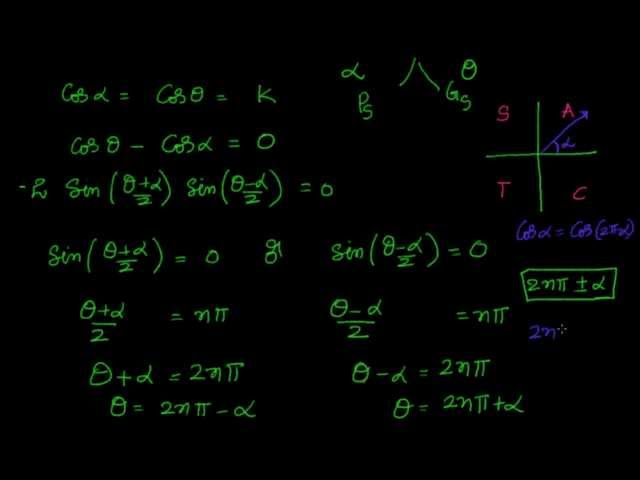 α θ
Cosα = Cosθ = K
Ps Gs
S A
α
Cosθ - Cosα = 0
-2 Sin(θ+α/2) Sin(θ-α/2) = 0
T C
Cosα = Cos(2πα)
Sin(θ+α/2) = 0 or Sin(θ-α/2) = 0
2nπ ± α
θ+α/2 = nπ θ-α/2 = nπ
2n
θ+α = 2nπ θ-α = 2nπ
θ = 2nπ-α θ = 2nπ+α